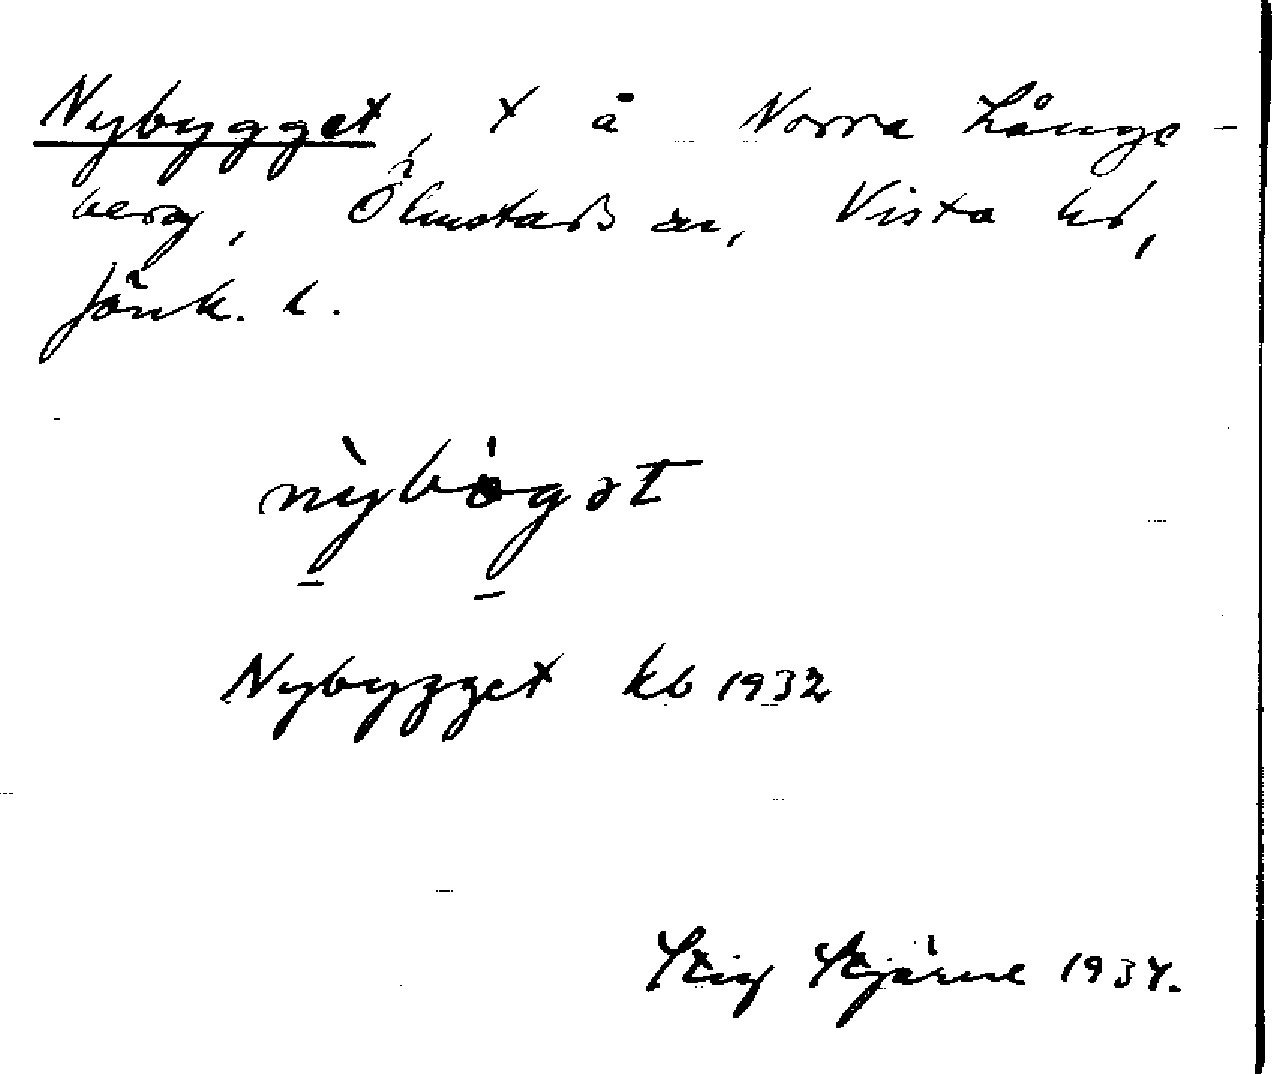 Nybygget, x å Norra Långe-
berg, Ölmstads sn, Vista hd,
Jönk. l.
nỳbögət
Nybygget kb 1932
Stig Stjärne 1934.